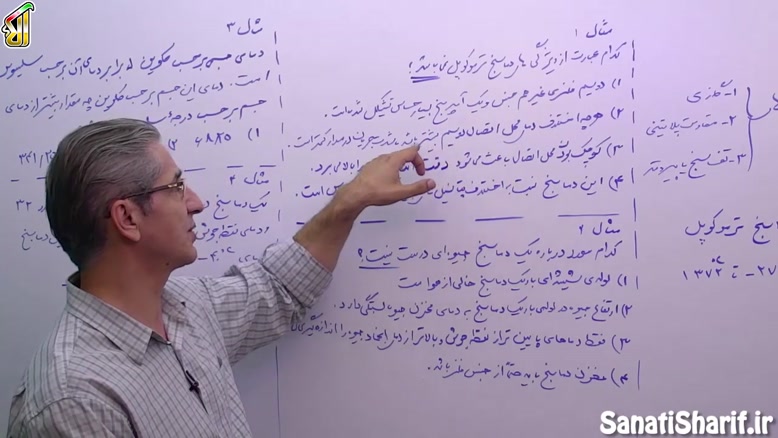 مثال ۱
کدام عبارت از ویژگی های دماسنج ترموکوپل نمی باشد؟
۱) دو سیم فلزی غیر هم جنس و یک آمپرسنج بسیار حساس تشکیل شده است.
۲) هرچه اختلاف دمای محل اتصال دو سیم بیشتر باشد شدت جریان در مدار کمتر است.
۳) کوچک بودن محل اتصال باعث می شود دقت بالا می برد.
۴) این دماسنج نسبت به اختلاف پتانسیل است.
مثال ۲
کدام مورد درباره یک دماسنج جیوه ای درست نیست؟
۱) لوله ی شیشه ای باریک دماسنج خالی از هوا است
۲) ارتفاع جیوه در لوله ی باریک دماسنج به دمای مخزن جیوه بستگی دارد.
۳) فقط دماهای پایین تر از نقطه جوش و بالاتر از دمای انجماد جیوه را اندازه گیری
۴) مخزن دماسنج باید حتماً از جنس فلز باشد.
مثال ۳
دمای جسمی برحسب کلوین برابر دمای آن برحسب سلسیوس
است. دمای این جسم برحسب کلوین چه مقدار بیشتر از دمای
جسم برحسب درجه
۱) ۶۸۸۵ ۲)
مثال ۴
یک دماسنج ۳۲
و دمای نقطه جوش
۱- گازی
۲- مقاومت پلاتینی
۳- تف سنج یا پیرومتر
سنج ترموکوپل
-۲۷ تا ۱۳۷۲°C
SanatiSharif.ir